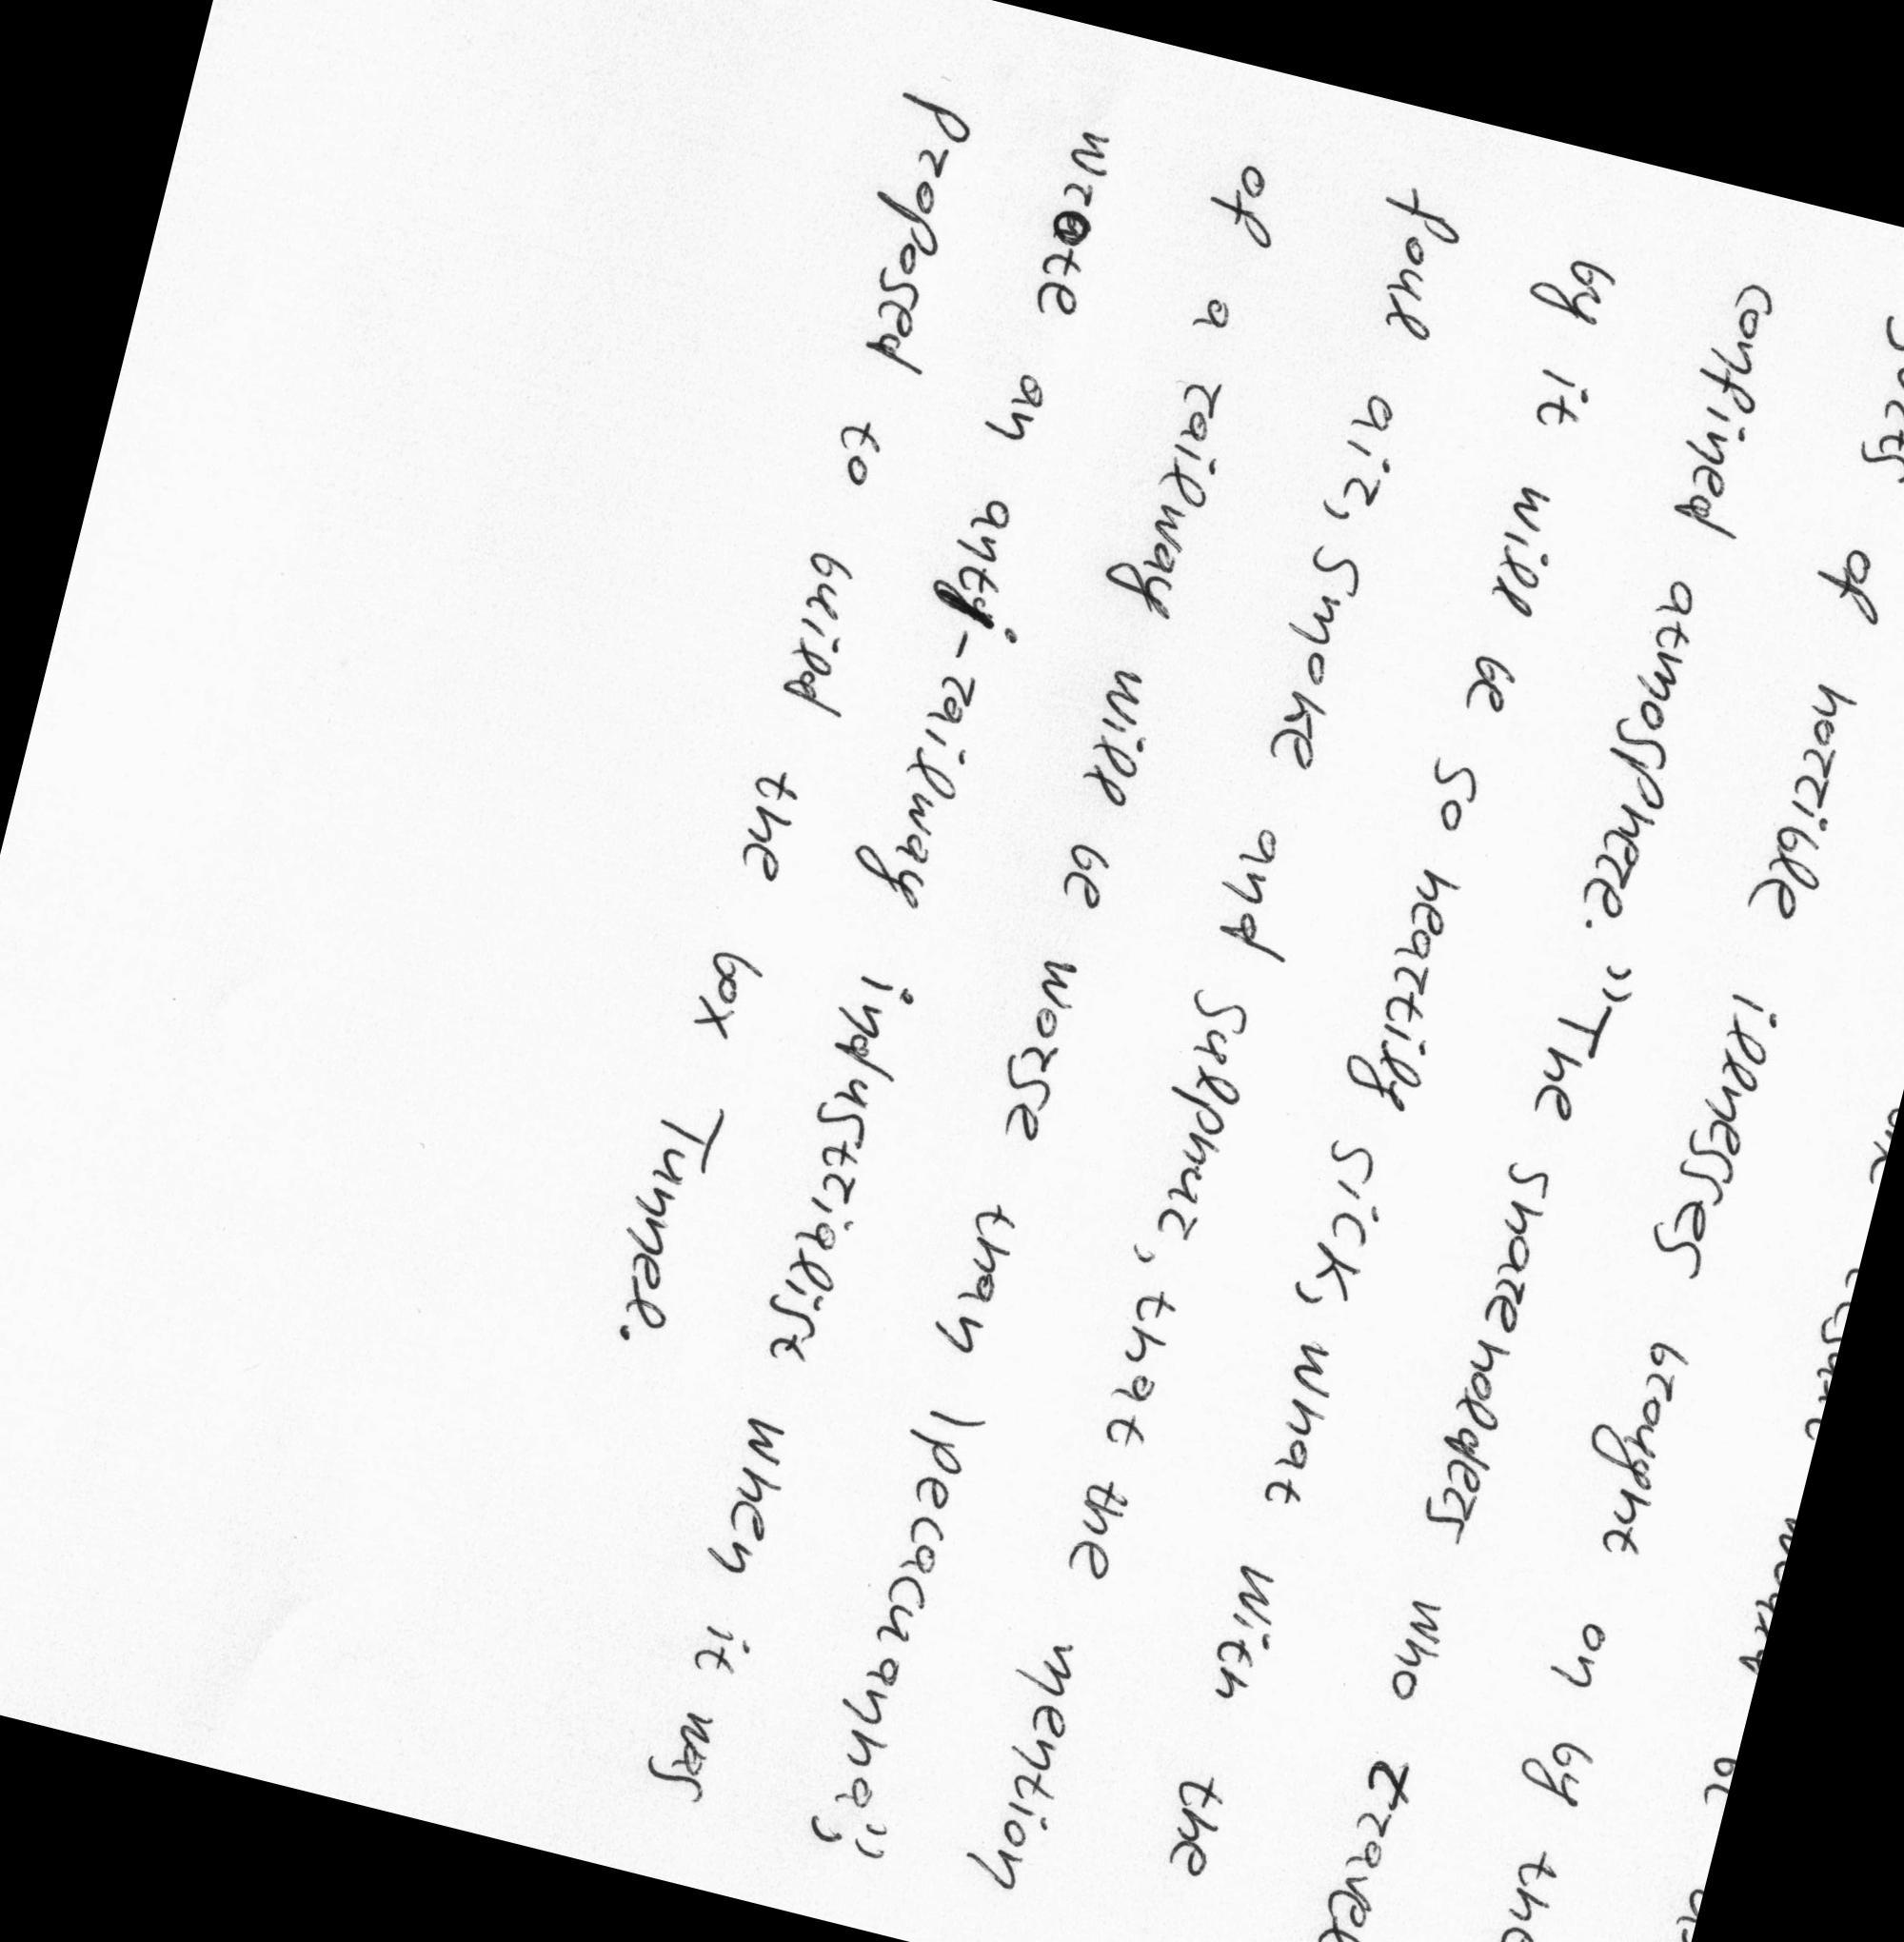 sorts of horrible illnesses brought on by the
confined atmosphere. "The shareholders who travel
by it will be so heartily sick, what with the
foul air, smoke and sulphur, that the mention
of a railway will be worse than Ipecacuanha",
wrote an anti-railway industrialist when it was
proposed to build the box Tunnel.